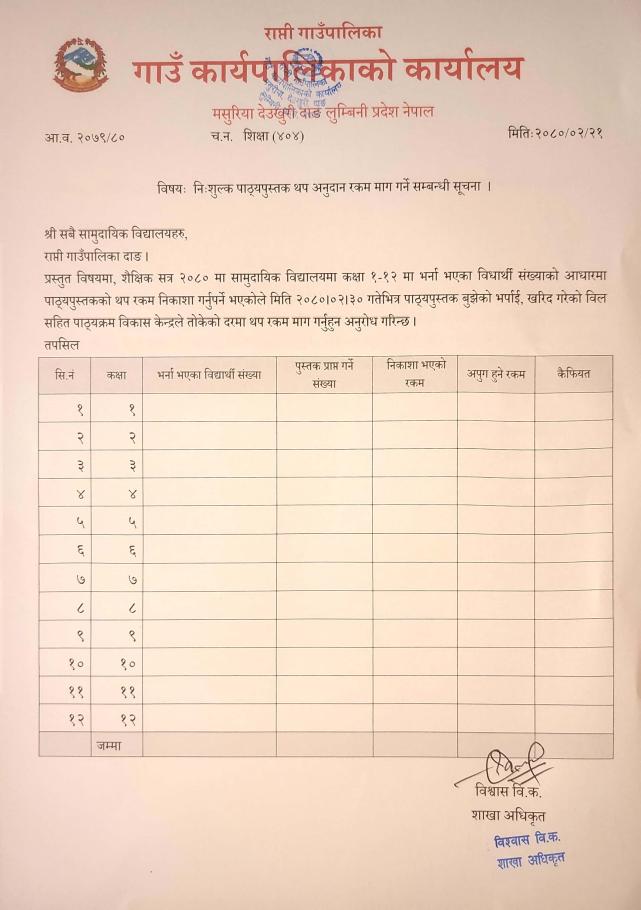 राप्ती गाउँपालिका
गाउँ कार्यपालिकाको कार्यालय
मसुरिया देउखुरी दाङ लुम्बिनी प्रदेश नेपाल
आ.व. २०७९/८० च.न. शिक्षा (४०४) मिति:२०८०/०२/२१
विषयः निःशुल्क पाठ्यपुस्तक थप अनुदान रकम माग गर्ने सम्बन्धी सूचना ।
श्री सबै सामुदायिक विद्यालयहरु,
राप्ती गाउँपालिका दाङ ।
प्रस्तुत विषयमा, शैक्षिक सत्र २०८० मा सामुदायिक विद्यालयमा कक्षा १-१२ मा भर्ना भएका विधार्थी संख्याको आधारमा
पाठ्यपुस्तकको थप रकम निकाशा गर्नुपर्ने भएकोले मिति २०८०।०२।३० गतेभित्र पाठ्यपुस्तक बुझेको भर्पाई, खरिद गरेको विल
सहित पाठ्यक्रम विकास केन्द्रले तोकेको दरमा थप रकम माग गर्नुहुन अनुरोध गरिन्छ ।
तपसिल
सि.नं कक्षा भर्ना भएका विद्यार्थी संख्या पुस्तक प्राप्त गर्ने संख्या निकाशा भएको रकम अपुग हुने रकम कैफियत
१ १
२ २
३ ३
४ ४
५ ५
६ ६
७ ७
८ ८
९ ९
१० १०
११ ११
१२ १२
जम्मा
विश्वास वि.क.
शाखा अधिकृत
विश्वास वि.क.
शाखा अधिकृत